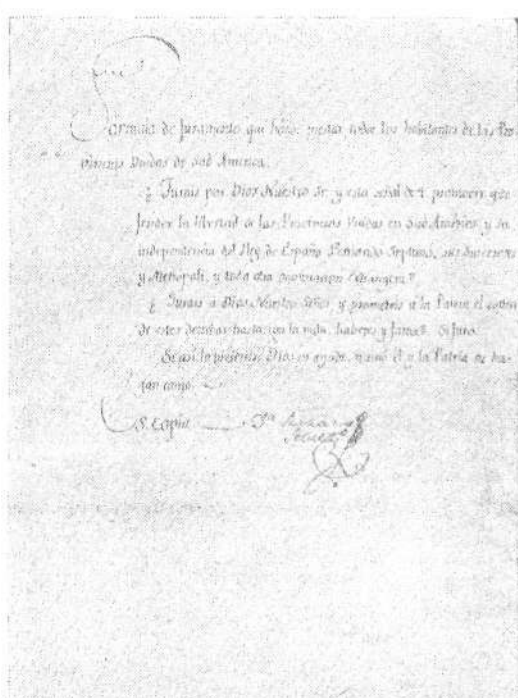 Formula de Juramento que haran prestar todos los habitantes de las Pro-
vincias Unidas de Sud America.
¿ Jurais por Dios Nuestro Sr. y esta señal de † promover y de-
fender la libertad de las Provincias Unidas en Sud America, y su
independencia del Rey de España Fernando Septimo, sus sucesores
y Metropoli, y toda otra dominacion extrangera?
¿ Jurais a Dios Nuestro Señor y prometeis a la Patria el sosten
de estos derechos hasta con la vida, haberes y fama? Si Juro.
Si asi lo hiciereis Dios os ayude, y sino el y la Patria os ha-
gan cargo.
S. Copia